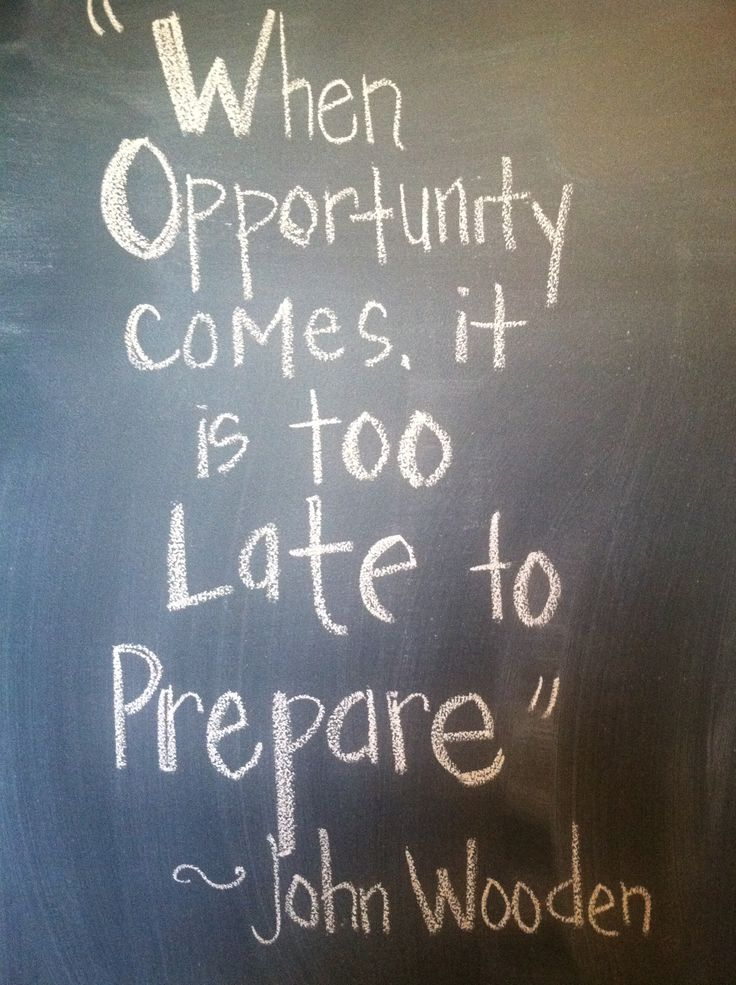 "When
Opportunity
comes, it
is too
Late to
Prepare"
~John Wooden